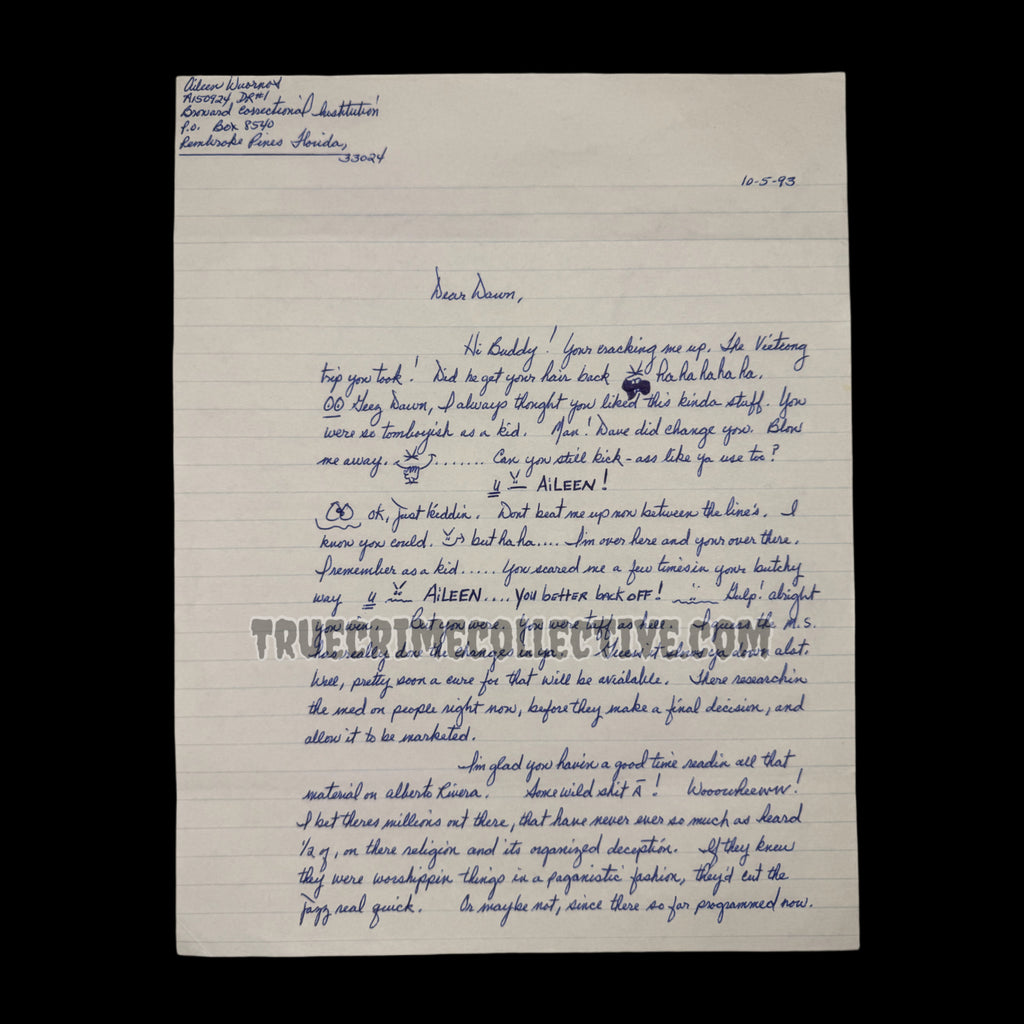 Aileen Wuornos
A150924, DR#1
Broward Correctional Institution
P.O. Box 8540
Pembroke Pines Florida,
33024
10-5-93
Dear Dawn,
Hi Buddy! Your cracking me up. The Vietcong
trip you took! Did he get your hair back ha ha ha ha ha.
Geez Dawn, I always thought you liked this kinda stuff. You
were so tomboyish as a kid. Man! Dave did change you. Blow
me away. ........ Can you still kick-ass like ya use too?
AiLEEN!
ok, just kiddin. Dont beat me up now between the line's. I
know you could. but ha ha.... I'm over here and your over there.
I remember as a kid..... You scared me a few times in your butchy
way AiLEEN.... YOU bETTER bACK OFF! Gulp! alright
you win. But you were. You were tuff as hell. I guess the M.S.
has really done the changes in ya. ya down alot.
TRUECRIMECOLLECTIVE.COM
Well, pretty soon a cure for that will be avialable. There researchin
the med on people right now, before they make a final decision, and
allow it to be marketed.
I'm glad you havin a good time readin all that
material on alberto Rivera. Some wild shit Ā! Wooowheeww!
I bet theres millions out there, that have never ever so much as heard
1/2 oz, on there religion and its organized deception. If they knew
they were worshippin things in a paganistic fashion, they'd cut the
jazz real quick. Or maybe not, since there so far programmed now.